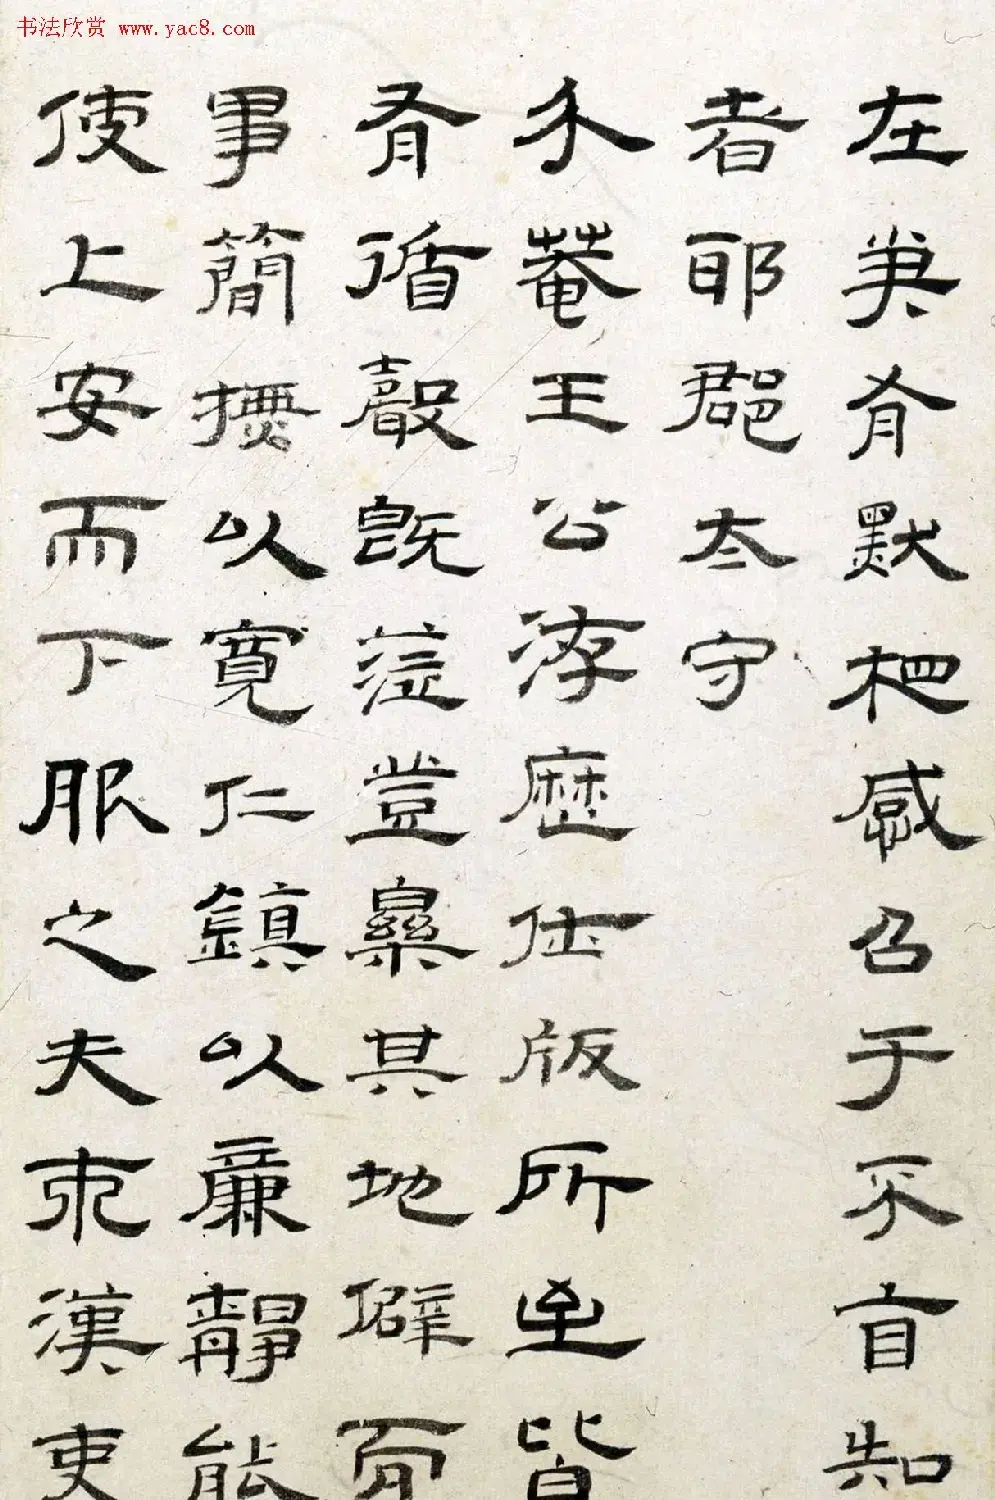 书法欣赏 www.yac8.com
在美有默相感召于不盲知
者耶郡太守
介菴王公洊歷仕版所至皆
有循聲既蒞豊㯟其地僻而
事簡撫以寬仁鎮以廉靜能
使上安而下服之夫東漢吏